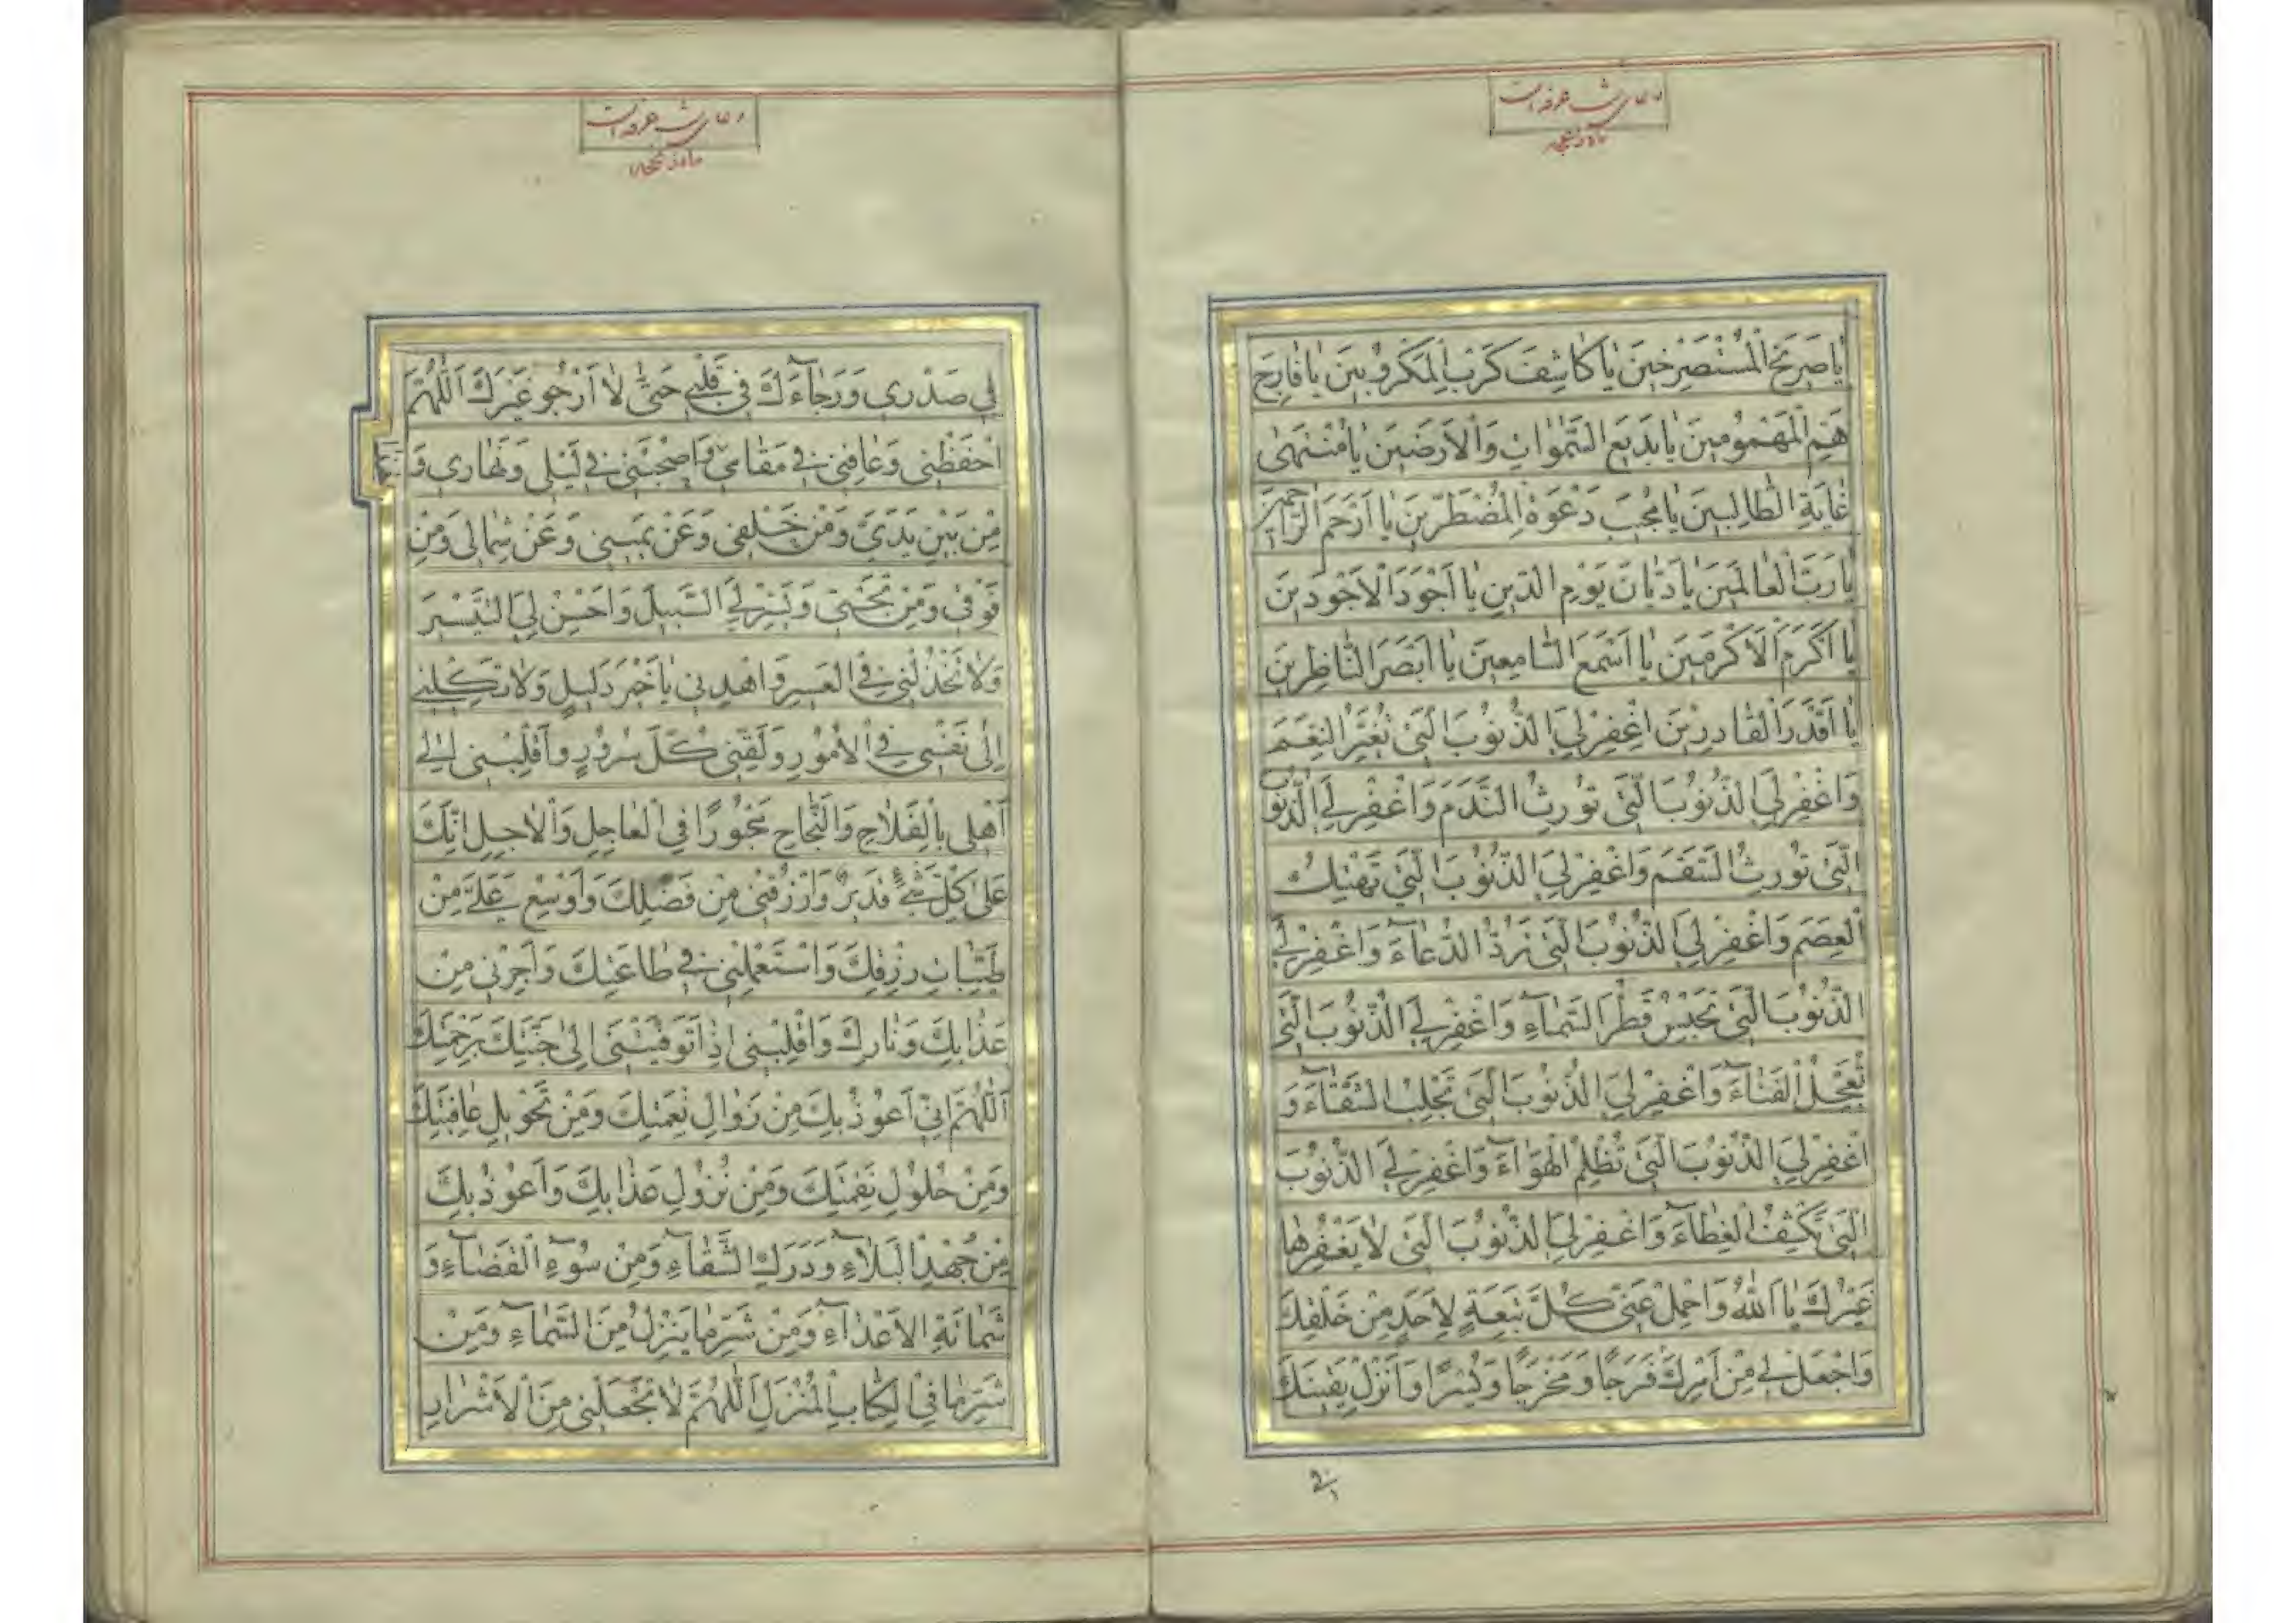 دعای شب عرفه است
یا صَریخَ الْمُسْتَصْرِخینَ یا کاشِفَ کَرْبِ الْمَکْرُوبینَ یا فارِجَ
هَمِّ الْمَهْمُومینَ یا بَدیعَ السَّمٰواتِ وَالْاَرَضینَ یا مُنْتَهیٰ
غایَةِ الطّالِبینَ یا مُجیبَ دَعْوَةِ الْمُضْطَرّینَ یا اَرْحَمَ الرّاحِمینَ
یا رَبَّ الْعالَمینَ یا دَیّانَ یَوْمِ الدّینِ یا اَجْوَدَ الْاَجْوَدینَ
یا اَکْرَمَ الْاَکْرَمینَ یا اَسْمَعَ السّامِعینَ یا اَبْصَرَ النّاظِرینَ
یا اَقْدَرَ الْقادِرینَ اِغْفِرْ لِیَ الذُّنُوبَ الَّتی تُغَیِّرُ النِّعَمَ
وَاغْفِرْ لِیَ الذُّنُوبَ الَّتی تُورِثُ النَّدَمَ وَاغْفِرْ لِیَ الذُّنُوبَ
الَّتی تُورِثُ السَّقَمَ وَاغْفِرْ لِیَ الذُّنُوبَ الَّتی تَهْتِکُ
الْعِصَمَ وَاغْفِرْ لِیَ الذُّنُوبَ الَّتی تَرُدُّ الدُّعآءَ وَاغْفِرْ لِیَ
الذُّنُوبَ الَّتی تَحْبِسُ قَطْرَ السَّمآءِ وَاغْفِرْ لِیَ الذُّنُوبَ الَّتی
تُعَجِّلُ الْفَنآءَ وَاغْفِرْ لِیَ الذُّنُوبَ الَّتی تَجْلِبُ الشَّقآءَ وَ
اغْفِرْ لِیَ الذُّنُوبَ الَّتی تُظْلِمُ الْهَوآءَ وَاغْفِرْ لِیَ الذُّنُوبَ
الَّتی تَکْشِفُ الْغِطآءَ وَاغْفِرْ لِیَ الذُّنُوبَ الَّتی لا یَغْفِرُها
غَیْرُکَ یا اَللهُ وَاحْمِلْ عَنّی کُلَّ تَبِعَةٍ لِاَحَدٍ مِنْ خَلْقِکَ
وَاجْعَلْ لی مِنْ اَمْرِکَ فَرَجًا وَمَخْرَجًا وَیُسْرًا وَاَنْزِلْ یَقینَکَ
دعای شب عرفه است
فی صَدْری وَرَجآءَکَ فی قَلْبی حَتّیٰ لا اَرْجُوَ غَیْرَکَ اَللّٰهُمَّ
احْفَظْنی وَعافِنی فی مَقامی وَاصْحَبْنی فی لَیْلی وَنَهاری وَ
مِنْ بَیْنِ یَدَیَّ وَمِنْ خَلْفی وَعَنْ یَمینی وَعَنْ شِمالی وَمِنْ
فَوْقی وَمِنْ تَحْتی وَیَسِّرْ لِیَ السَّبیلَ وَاَحْسِنْ لِیَ التَّیْسیرَ
وَلا تَخْذُلْنی فِی الْعَسیرِ وَاهْدِنی یا خَیْرَ دَلیلٍ وَلا تَکِلْنی
اِلیٰ نَفْسی فِی الْاُمُورِ وَلَقِّنی کُلَّ سُرُورٍ وَاَقْلِبْنی اِلیٰ
اَهْلی بِالْفَلاحِ وَالنَّجاحِ مَحْبُورًا فِی الْعاجِلِ وَالْاٰجِلِ اِنَّکَ
عَلیٰ کُلِّ شَیْءٍ قَدیرٌ وَارْزُقْنی مِنْ فَضْلِکَ وَاَوْسِعْ عَلَیَّ مِنْ
طَیِّباتِ رِزْقِکَ وَاسْتَعْمِلْنی فی طاعَتِکَ وَاَجِرْنی مِنْ
عَذابِکَ وَنارِکَ وَاَقْلِبْنی اِذا تَوَفَّیْتَنی اِلیٰ جَنَّتِکَ بِرَحْمَتِکَ
اَللّٰهُمَّ اِنّی اَعُوذُ بِکَ مِنْ زَوالِ نِعْمَتِکَ وَمِنْ تَحْویلِ عافِیَتِکَ
وَمِنْ حُلُولِ نِقْمَتِکَ وَمِنْ نُزُولِ عَذابِکَ وَاَعُوذُ بِکَ
مِنْ جُهْدِ الْبَلآءِ وَدَرَکِ الشَّقآءِ وَمِنْ سُوءِ الْقَضآءِ وَ
شَماتَةِ الْاَعْدآءِ وَمِنْ شَرِّ ما یَنْزِلُ مِنَ السَّمآءِ وَمِنْ
شَرِّ ما فِی الْکِتابِ الْمُنْزَلِ اَللّٰهُمَّ لا تَجْعَلْنی مِنَ الْاَشْرارِ